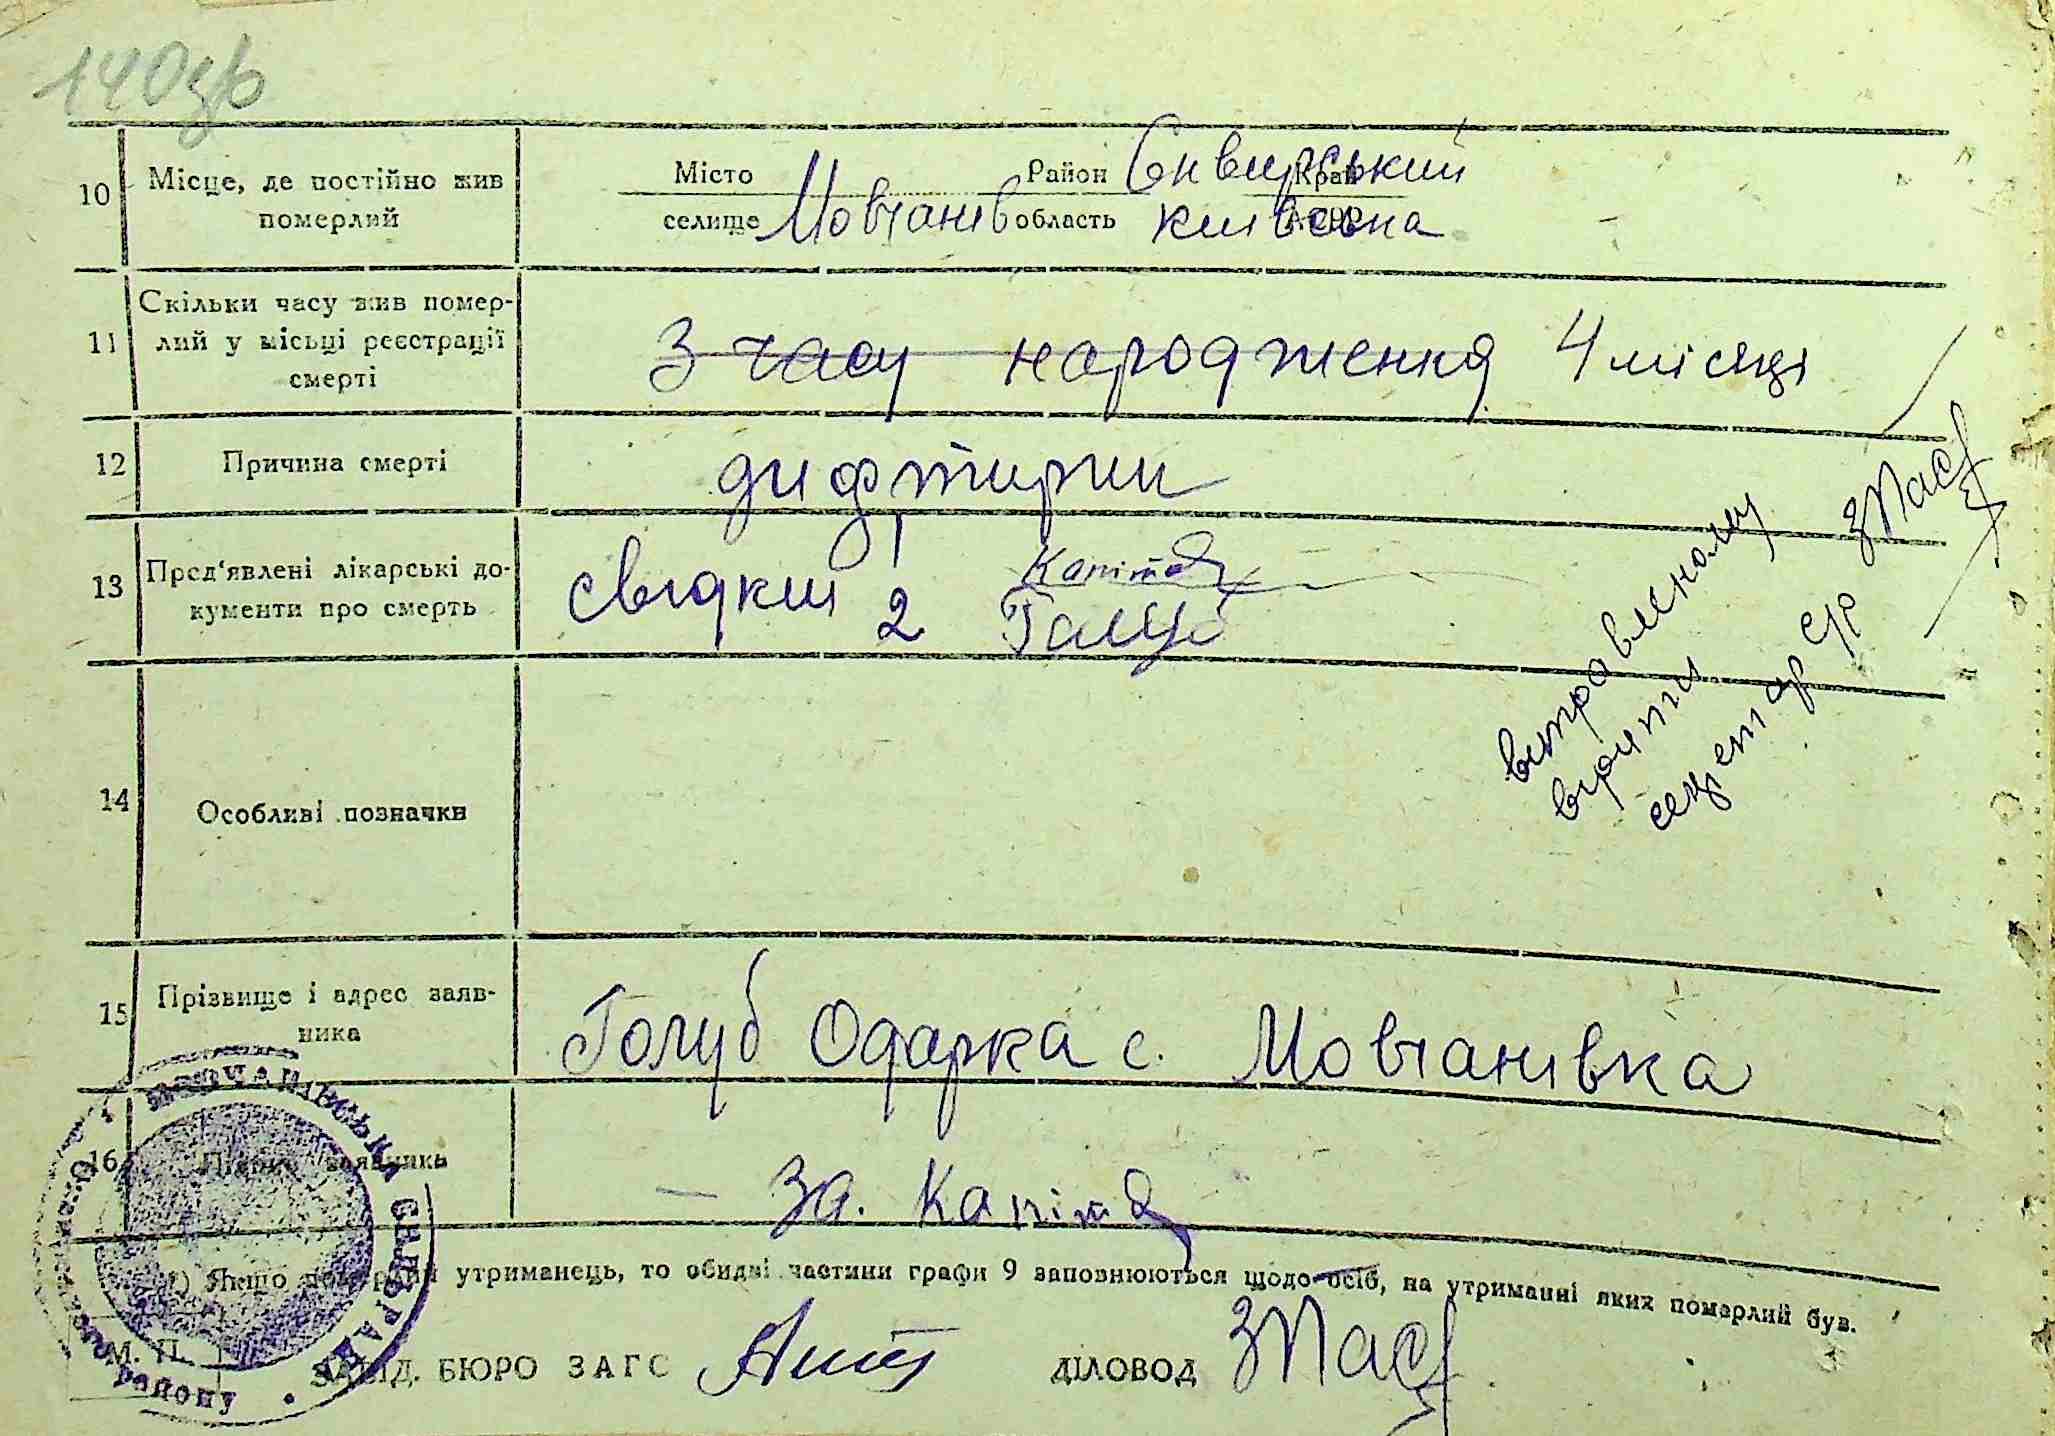 140зв
10 Місце, де постійно жив Місто Район Сквирський Край
померлий селище Мовчанів область київська АСРР
Скільки часу жив помер-
11 лий у місці реєстрації З часу народження 4 місяці
смерті
12 Причина смерті дифтирии
13 Пред'явлені лікарські до- свідки 2
кументи про смерть Голуб
виправленому
вірити
секретар с/р
14 Особливі позначки
15 Прізвище і адрес заяв- Голуб Одарка с. Мовчанівка
ника
16 Підпис заявника За.
1) Якщо померлий утриманець, то обидві частини графи 9 заповнюються щодо осіб, на утриманні яких померлий був.
М. П.
ЗАВІД. БЮРО ЗАГС ДІЛОВОД
МОВЧАНІВСЬКА СІЛЬРАДА
району